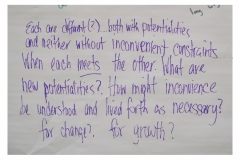 Each are different (?) both with potentialities
and neither without inconvenient constraints
When each meets the other what are
new potentialities?. How might inconvenience
be understood and lived forth as necessary?
for change?. for growth?